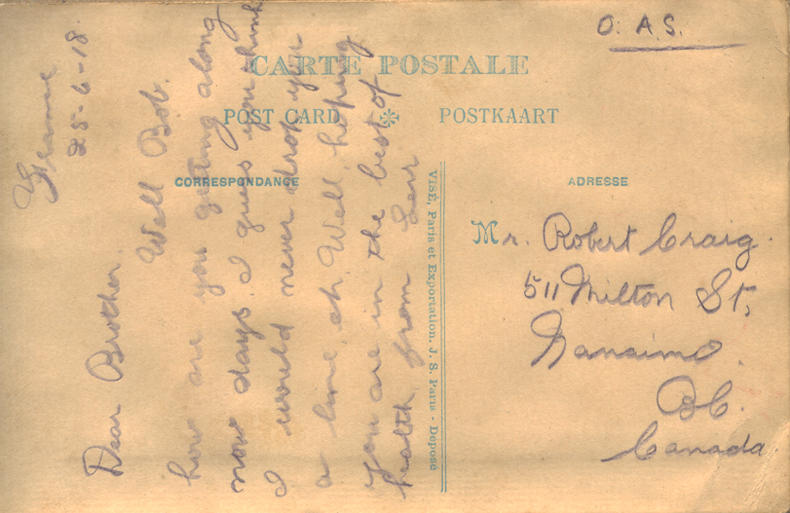 O. A. S.
CARTE POSTALE
POST CARD ❋ POSTKAART
CORRESPONDANCE
ADRESSE
France
25-6-18.
Dear Brother.
Well Bob.
how are you getting along
now days. I guess you think
I would never drop you
a line eh. Well hoping
you are in the best of
health from
VISÉ, Paris et Exportation. J. S. Paris - Déposé
Mr. Robert Craig.
511 Milton St,
Nanaimo.
B.C.
Canada.